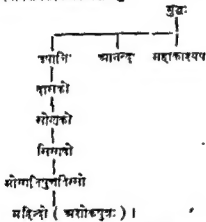 बुद्धः
उपालि आनन्द महाकाश्यप
दासको
सोणको
सिग्गवो
मोग्गलिपुत्ततिस्सो
महिन्दो ( अशोकपुत्रः ) ।